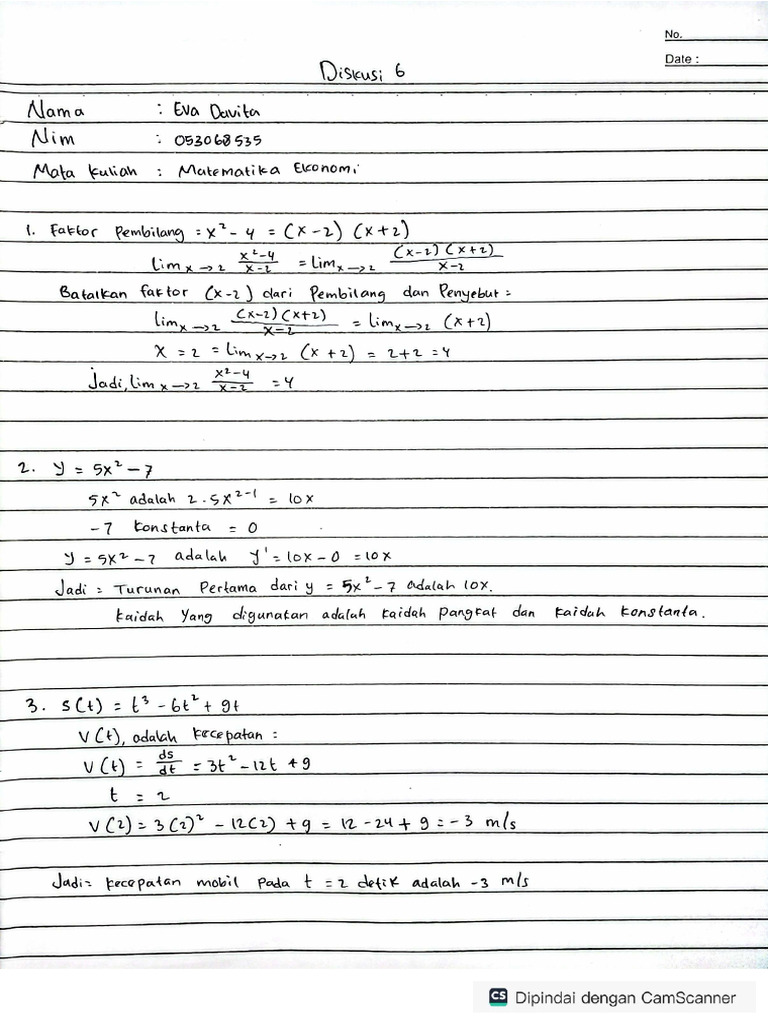 No.
Date :
Diskusi 6
Nama : Eva Davita
Nim : 053068535
Mata kuliah : Matematika Ekonomi
1. Faktor Pembilang = x² - 4 = (x-2) (x+2)
Lim x→2 x²-4/x-2 = Lim x→2 (x-2)(x+2)/x-2
Batalkan faktor (x-2) dari Pembilang dan Penyebut =
Lim x→2 (x-2)(x+2)/x-2 = Lim x→2 (x+2)
x = 2 = Lim x→2 (x+2) = 2+2 = 4
Jadi, Lim x→2 x²-4/x-2 = 4
2. y = 5x² - 7
5x² adalah 2 . 5x²⁻¹ = 10x
-7 konstanta = 0
y = 5x² - 7 adalah y' = 10x - 0 = 10x
Jadi = Turunan Pertama dari y = 5x² - 7 adalah 10x.
Kaidah yang digunakan adalah kaidah Pangkat dan kaidah konstanta.
3. S(t) = t³ - 6t² + 9t
V(t), adalah kecepatan :
V(t) = ds/dt = 3t² - 12t + 9
t = 2
V(2) = 3(2)² - 12(2) + 9 = 12 - 24 + 9 = -3 m/s
Jadi = kecepatan mobil pada t = 2 detik adalah -3 m/s
CS Dipindai dengan CamScanner